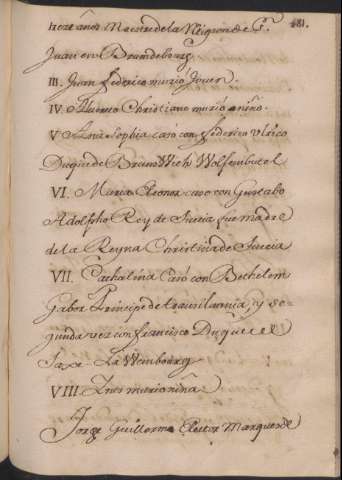 181.
trere años Maestre de la Religion de S.
Juan en Bramdebourg
III. Juan federico murio Joven.
IV. Alberto Christiano murio niño.
V Ana Sophia caso con federico Vlrico
Duque de Brunswich Wolfembutel
VI. Maria Eleonor caso con Gustabo
Adolpho Rey de Suecia fue madre
de la Reyna Christina de Suecia
VII. Cathalina Casó con Bethelem
Gabor Principe de transilvania, y se-
gunda vez con francisco Duque el
Saxe-Lawembourg
VIII. Ines murio niña
Jorge Guillermo Elector Marques de